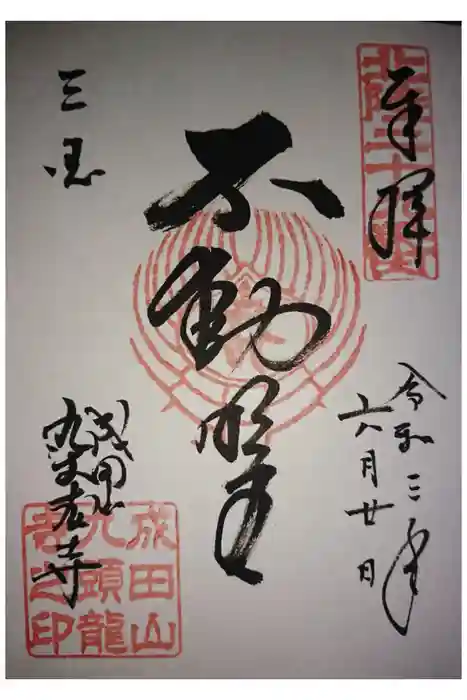 奉拝
令和三年
六月廿日
不動明王
三国
成田山
九头龍寺
成田山
九頭龍
寺之印